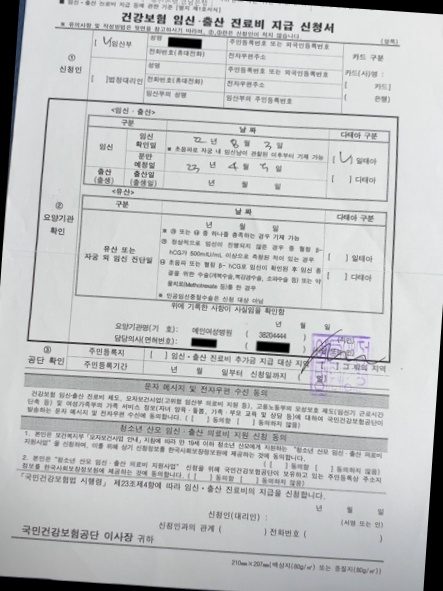 ■ 임신·출산 진료비 지급 등에 관한 기준 [별지 제1호서식]
건강보험 임신·출산 진료비 지급 신청서
※ 유의사항 및 작성방법은 뒷면을 참고하시기 바라며, 란은 신청인이 적지 않습니다. (앞쪽)
① 신청인
[√]임산부 성명 주민등록번호 또는 외국인등록번호 카드 구분
전화번호(휴대전화) 전자우편주소 카드(사)명 :
[ ]법정대리인 성명 주민등록번호 또는 외국인등록번호 [ 카드]
전화번호(휴대전화) 전자우편주소 [ 은행]
임산부의 성명 임산부의 주민등록번호
② 요양기관 확인
<임신·출산>
구분 날 짜 다태아 구분
임신 임신 확인일 22 년 8 월 3 일
※ 초음파로 자궁 내 임신낭이 관찰된 이후부터 기재 가능
분만 예정일 23 년 4 월 5 일
[√] 일태아
출산 (출생) 출산일 (출생일) 년 월 일 [ ] 다태아
<유산>
구분 날 짜 다태아 구분
유산 또는 자궁 외 임신 진단일
년 월 일
※ ㉮ 또는 ㉯ 중 하나를 충족하는 경우 기재 가능
㉮ 정상적으로 임신이 진행되지 않은 경우 중 혈청 β-
hCG가 500mIU/mL 이상으로 측정된 적이 있는 경우
㉯ 초음파 또는 혈청 β- hCG로 임신이 확인된 후 임신 종
결을 위한 수술(개복수술,복강경수술, 소파수술 등) 또는 약
물치료(Methotrexate 등)를 한 경우
※ 인공임신중절수술은 신청 대상 아님
[ ] 일태아
[ ] 다태아
위에 기록한 사항이 사실임을 확인함
년 월 일
요양기관명(기 호): 메인여성병원 38204444
담당의사(면허번호):
③ 공단 확인
주민등록지 [ ] 임신·출산 진료비 추가금 지급 대상 지역 [ ] 그 밖의 지역
주민등록기간 년 월 일부터 신청일까지
문자 메시지 및 전자우편 수신 동의
건강보험 임신·출산 진료비 제도, 모자보건사업(고위험 임산부 의료비 지원 등), 고용노동부의 모성보호 제도(임신기 근로시간
단축 등) 및 여성가족부의 가족 서비스 정보(자녀 양육·돌봄, 가족·부모 교육 및 상담 등)에 대하여 국민건강보험공단이
발송하는 문자 메시지 및 전자우편 수신에 동의합니다. ( [ ] 동의함 [ ] 동의하지 않음)
청소년 산모 임신·출산 의료비 지원 신청 동의
1. 본인은 보건복지부 「모자보건사업 안내」 지침에 따라 만 19세 이하 청소년 산모에게 지원하는 "청소년 산모 임신·출산 의료비 지원사업"
을 신청하며, 이를 위해 상기 신청정보를 한국사회보장정보원에 제공하는 것에 동의합니다.
( [ ] 동의함 [ ] 동의하지 않음)
2. 본인은 "청소년 산모 임신·출산 의료비 지원사업" 신청을 위해 국민건강보험공단이 보유하고 있는 주민등록상 주소지
정보를 한국사회보장정보원에 제공하는 것에 동의합니다. ( [ ] 동의함 [ ] 동의하지 않음)
「국민건강보험법 시행령」 제23조제4항에 따라 임신·출산 진료비의 지급을 신청합니다.
년 월 일
신청인(대리인) : (서명 또는 인)
신청인과의 관계 ( ) 전화번호 ( )
국민건강보험공단 이사장 귀하
210㎜×297㎜(백상지(80g/㎡) 또는 중질지(80g/㎡))